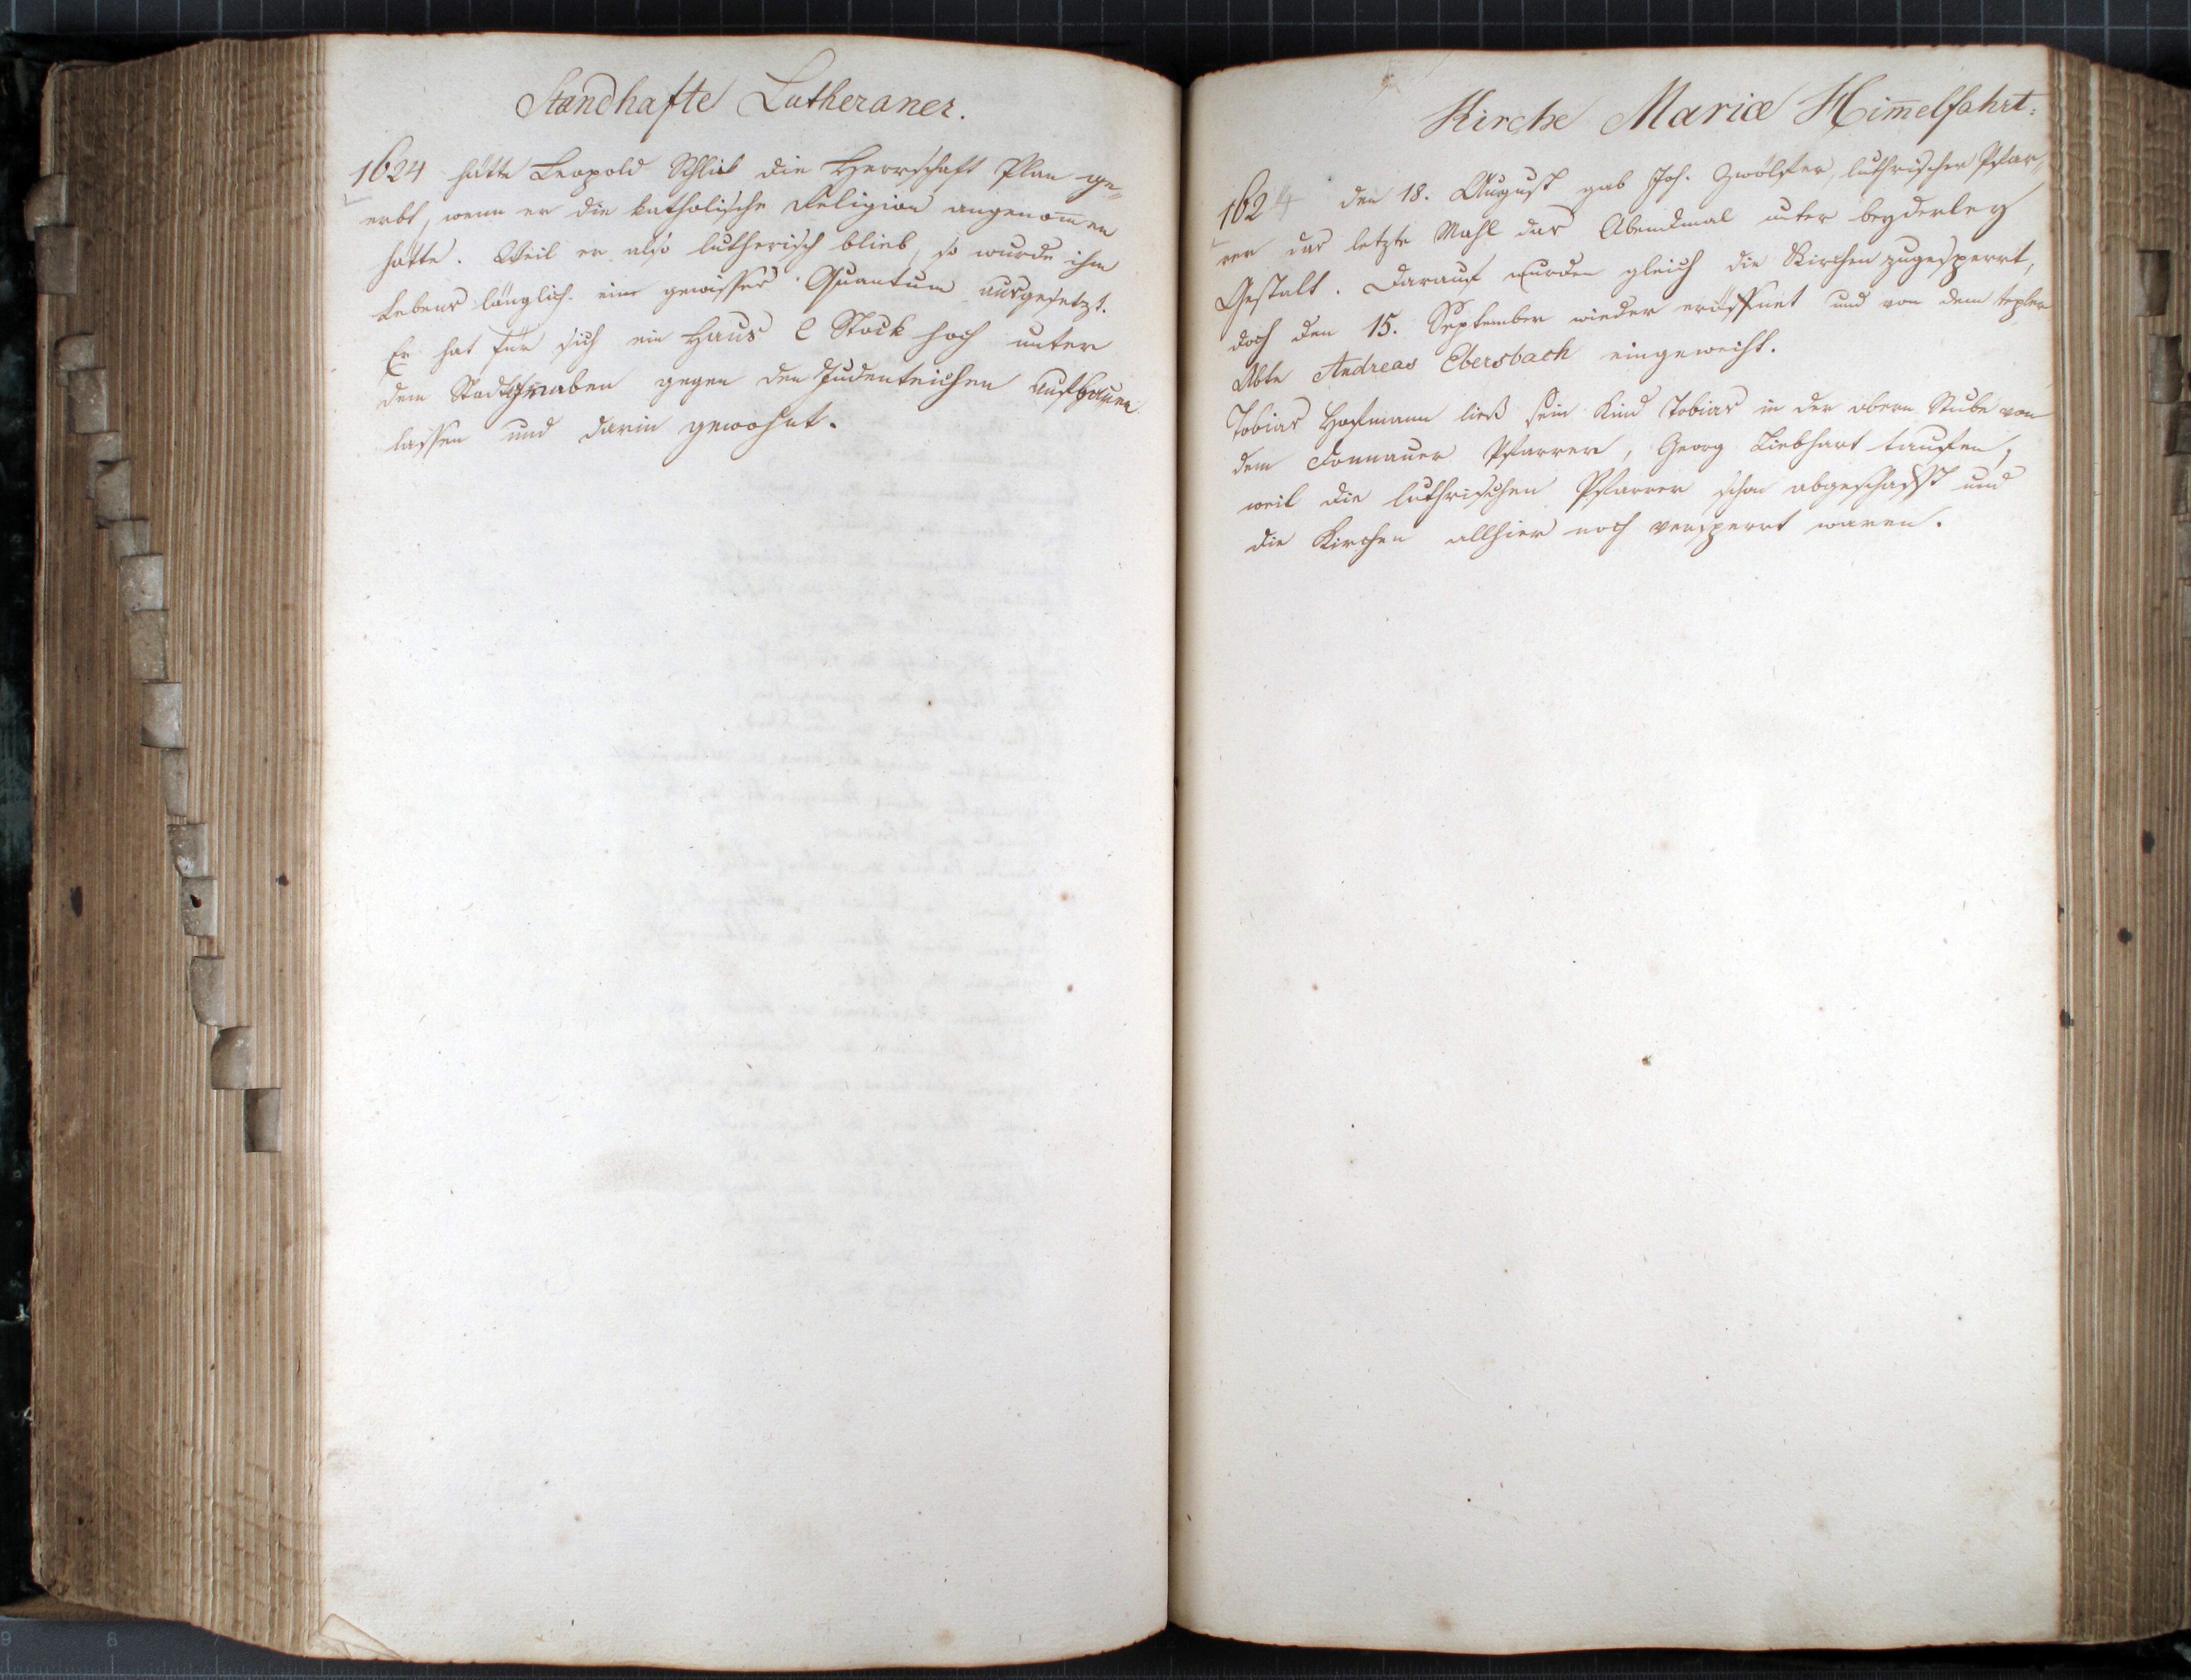 Standhafte Lutheraner.
1624 hätte Leopold Schlik die Herrschaft Plan ge=
erbt, wenn er die katholische Religion angenom̅en
hätte. Weil er also lutherisch blieb, so wurde ihm
Lebens länglich ein gewisses Quantum ausgesetzt.
Er hat für sich ein Haus 2 Stock hoch unter
dem Stadtgraben gegen den Judenteichen aufbauen
lassen und darin gewohnt.
Kirche Mariæ Him̅elfahrt.
1624 den 18. August gab Joh. Zwölfer, luthrischer Pfar=
rer das letzte Mahl das Abendmal unter beyderley
Gestalt. Darauf wurden gleich die Kirchen zugesperrt,
doch den 15. September wieder eröffnet und von dem tepler
Abte Andreas Ebersbach eingeweiht.
Tobias Hofmann ließ sein Kind Tobias in der obern Stube von
dem Pfarrer, Georg Liebhart taufen,
weil die luthrischen Pfarrer schon abgeschafft und
die Kirchen allhier noch versperrt waren.